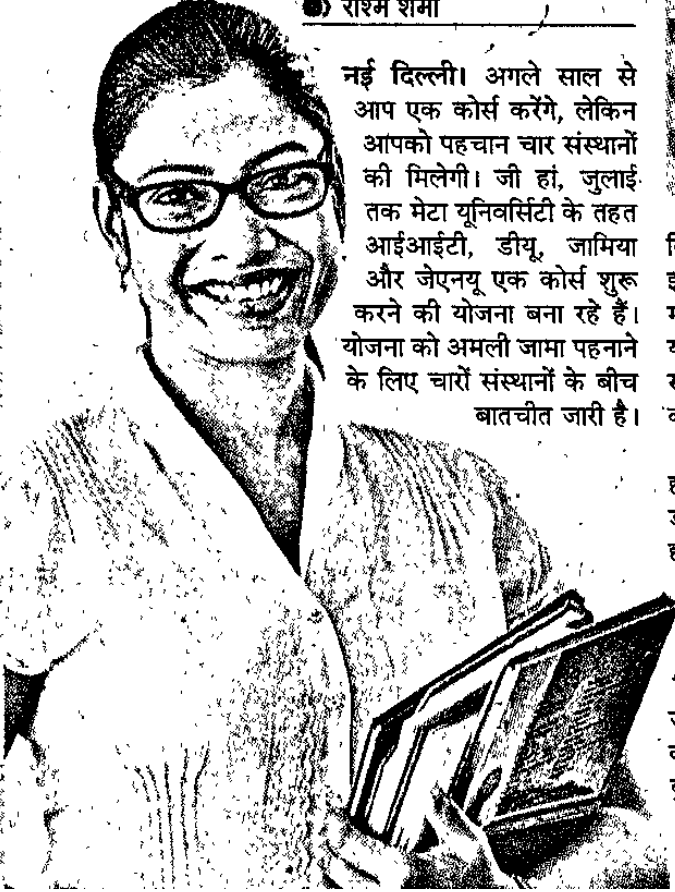 रश्मि शर्मा
नई दिल्ली। अगले साल से
आप एक कोर्स करेंगे, लेकिन
आपको पहचान चार संस्थानों
की मिलेगी। जी हां, जुलाई
तक मेटा यूनिवर्सिटी के तहत
आईआईटी, डीयू, जामिया
और जेएनयू एक कोर्स शुरू
करने की योजना बना रहे हैं।
योजना को अमली जामा पहनाने
के लिए चारों संस्थानों के बीच
बातचीत जारी है।